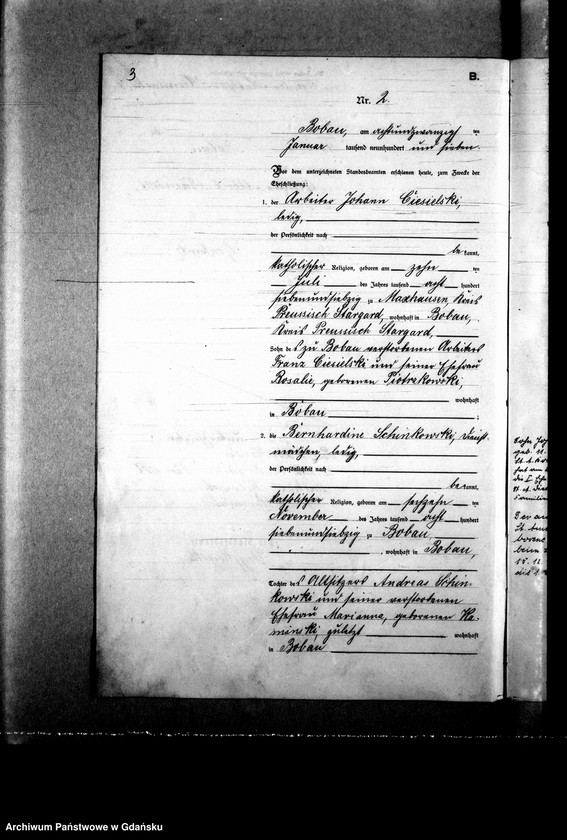 3
B.
Nr. 2.
Bobau, am achtundzwanzigsten
Januar tausend neunhundert und sieben.
Vor dem unterzeichneten Standesbeamten erschienen heute, zum Zwecke der
Eheschließung:
1. der Arbeiter Johann Ciesielski,
ledig,
der Persönlichkeit nach
be kannt,
katholischer Religion, geboren am zehn ten
Juli des Jahres tausend acht hundert
siebenundsiebzig zu Maxhausen, Kreis
Preussisch Stargard, wohnhaft in Bobau,
Kreis Preussisch Stargard,
Sohn des zu Bobau verstorbenen Arbeiters
Franz Ciesielski und seiner Ehefrau
Rosalie, geborenen Piotrzkowski,
wohnhaft
in Bobau ;
2. die Bernhardine Schinkowski, Dienst-
mädchen, ledig,
der Persönlichkeit nach
be kannt,
katholischer Religion, geboren am sechzehn ten
November des Jahres tausend acht hundert
siebenundsiebzig zu Bobau
, wohnhaft in Bobau,
Tochter des Altsitzers Andreas Schin-
kowski und seiner verstorbenen
Ehefrau Marianna, geborenen Ka-
minski, zuletzt wohnhaft
in Bobau
Archiwum Państwowe w Gdańsku